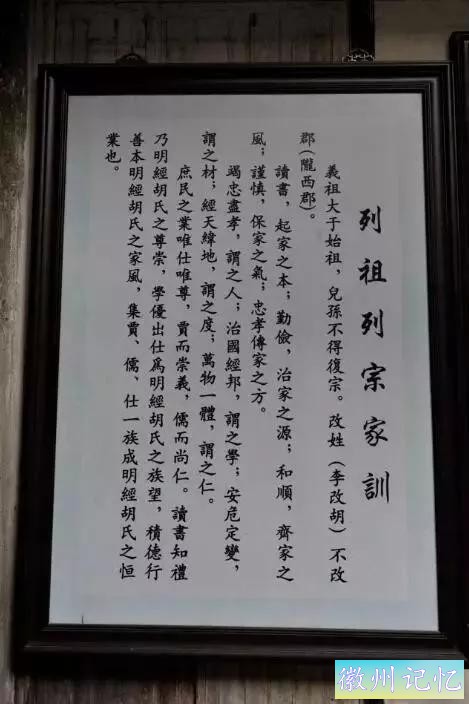 列祖列宗家訓
義祖大于始祖，兒孫不得復宗。改姓（李改胡）不改
郡（隴西郡）。
讀書，起家之本；勤儉，治家之源；和順，齊家之
風；謹慎，保家之氣；忠孝傳家之方。
竭忠盡孝，謂之人；治國經邦，謂之學；安危定變，
謂之材；經天緯地，謂之度；萬物一體，謂之仁。
庶民之業唯仕唯尊，賈而崇義，儒而尚仁。讀書知禮
乃明經胡氏之尊崇，學優出仕爲明經胡氏之族望，積德行
善本明經胡氏之家風，集賈、儒、仕一族成明經胡氏之恒
業也。
徽州记忆